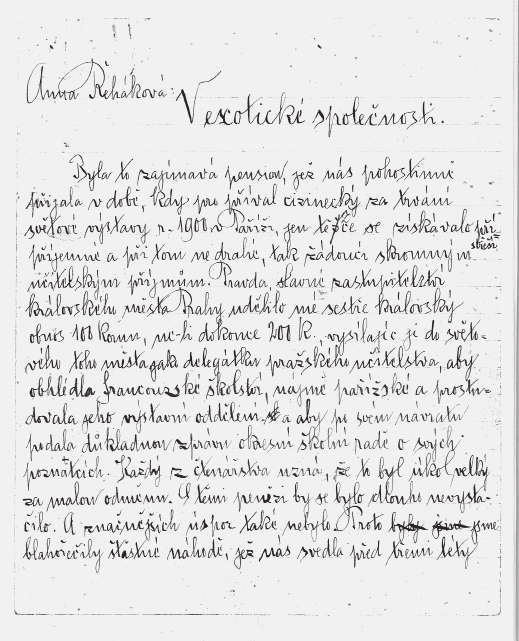 Anna Řeháková:
V exotické společnosti.
Byla to zajímavá pension, jež nás pohostinně
přijala v době, kdy pro příval cizinecký za trvání
světové výstavy r. 1900 v Paříži, jen těžce se získávalo pří-
střeší
příjemné a při tom ne drahé, tak žádoucí skromným
učitelským příjmům. Pravda, slavné zastupitelství
královského města Prahy udělilo mé sestře královský
obnos 100 korun, ne-li dokonce 200 K., vysílajíc ji do světo-
vého toho města jak delegátku pražského učitelstva, aby
obhlédla francouzské školství, najmě pařížské a prostu-
dovala jeho výstavní oddělení, a aby po svém návratu
podala důkladnou zprávu okresní školní radě o svých
poznatcích. Každý z čtenářstva uzná, že to byl úkol velký
za malou odměnu. S těmi penězi by se bylo dlouho nevysta-
čilo. A značnějších úspor také nebylo. Proto byly jsme jsme
blahořečily šťastné náhodě, jež nás svedla před třemi léty